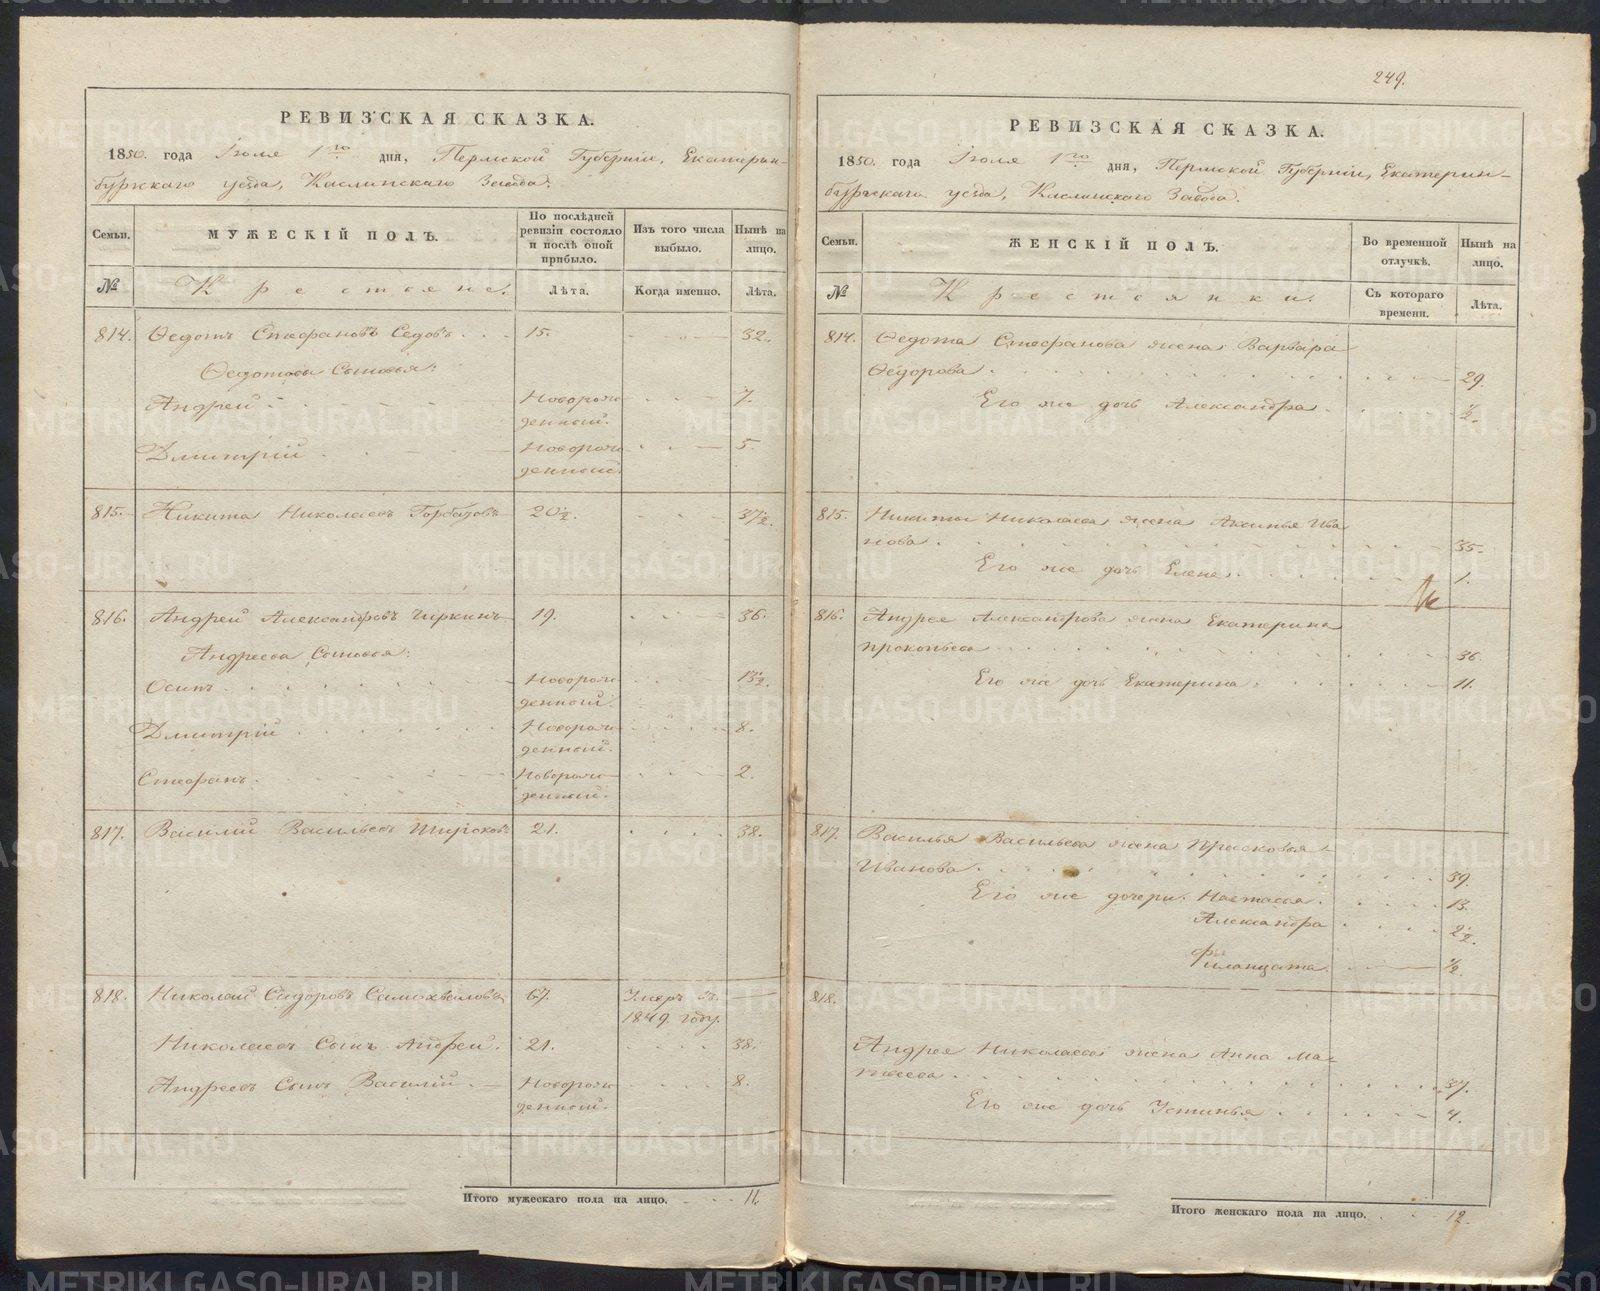 249.
РЕВИЗСКАЯ СКАЗКА.
1850. года Іюля 1го дня, Пермской Губерніи, Екатерин-
бургскаго уезда, Каслинскаго Завода.
Семьи. МУЖЕСКІЙ ПОЛЪ. По послѣдней ревизіи состояло и послѣ оной прибыло. Изъ того числа выбыло. Нынѣ на лицо.
№ Крестьяне. Лѣта. Когда именно. Лѣта.
814. Ѳедотъ Стефановъ Седовъ 15. 32.
Ѳедотова Сыновья:
Андрей Новорожденный. 7.
Дмитрій Новорожденный. 5.
815. Никита Николаевъ Горбатовъ 20½. 37½.
816. Андрей Александровъ Чиркинъ 19. 36.
Андреева Сыновья:
Осипъ Новорожденный. 13½.
Дмитрій Новорожденный. 8.
Стефанъ Новорожденный. 2.
817. Василій Васильевъ Широковъ 21. 38.
818. Николай Сидоровъ Самохваловъ 67. Умеръ въ 1849. году.
Николаевъ Сынъ Андрей. 21. 38.
Андреевъ Сынъ Василій. Новорожденный. 8.
Итого мужескаго пола на лицо. 11.
РЕВИЗСКАЯ СКАЗКА.
1850. года Іюля 1го дня, Пермской Губерніи, Екатерин-
бургскаго уезда, Каслинскаго Завода.
Семьи. ЖЕНСКІЙ ПОЛЪ. Во временной отлучкѣ. Нынѣ на лицо.
№ Крестьянки. Съ котораго времени. Лѣта.
814. Ѳедота Стефанова жена Варвара
Ѳедорова. 29.
Его же дочь Александра. ½.
815. Никиты Николаева жена Аксинья Ива
нова. 35.
Его же дочь Елена. 1.
816. Андрея Александрова жена Екатерина
Прокопьева 36.
Его же дочь Екатерина. 11.
817. Василья Васильева жена Прасковья
Иванова. 39.
Его же дочери: Настасья. 13.
Александра 2½.
Филанцата ½.
818.
Андрея Николаева жена Анна Ма-
твеева. 37.
Его же дочь Устинья 4.
Итого женскаго пола на лицо. 12.
METRIKI.GASO-URAL.RU